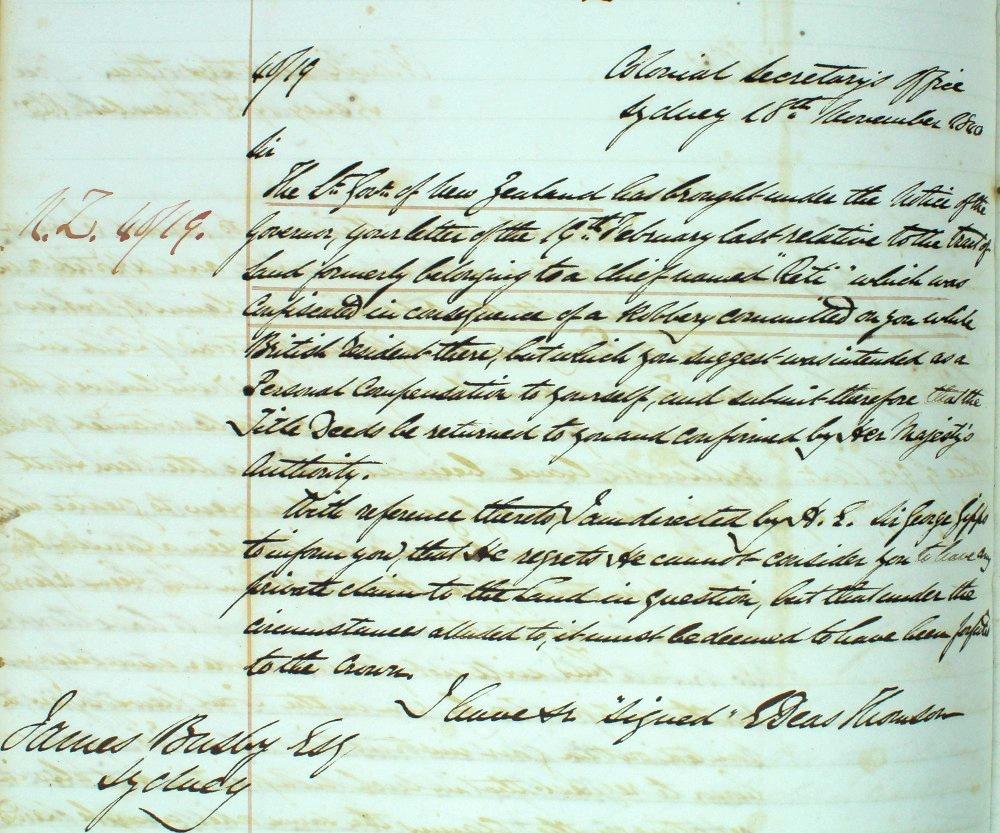 40/19
Colonial Secretary's Office
Sydney 18th November 1840
Sir
The Lt Govr. of New Zealand has brought under the Notice of the
N.Z. 40/19.
Governor, your letter of the 19th February last relative to the tract of
Land formerly belonging to a Chief named "Reti" which was
Confiscated in consequence of a Robbery committed on you while
British Resident there, but which you suggest was intended as a
Personal Compensation to yourself, and submit therefore that the
Title Deeds be returned to you and confirmed by Her Majesty's
Authority.
With reference thereto I am directed by H. E. Sir George Gipps
to inform you, that He regrets He cannot consider you to have any
private claim to the Land in question, but that under the
circumstances alluded to, it must be deemed to have been forfeited
to the Crown.
I have &c "Signed" E Deas Thomson
James Busby Esq
Sydney